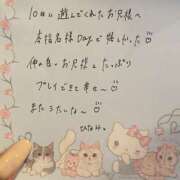 10日に遊んでくれたお兄様へ
本指名様Dayで嬉しかった♡
仲良しお兄様とたっぷり
プレイできて幸せ〜♡
また会いたいな〜♡
ひなみ。